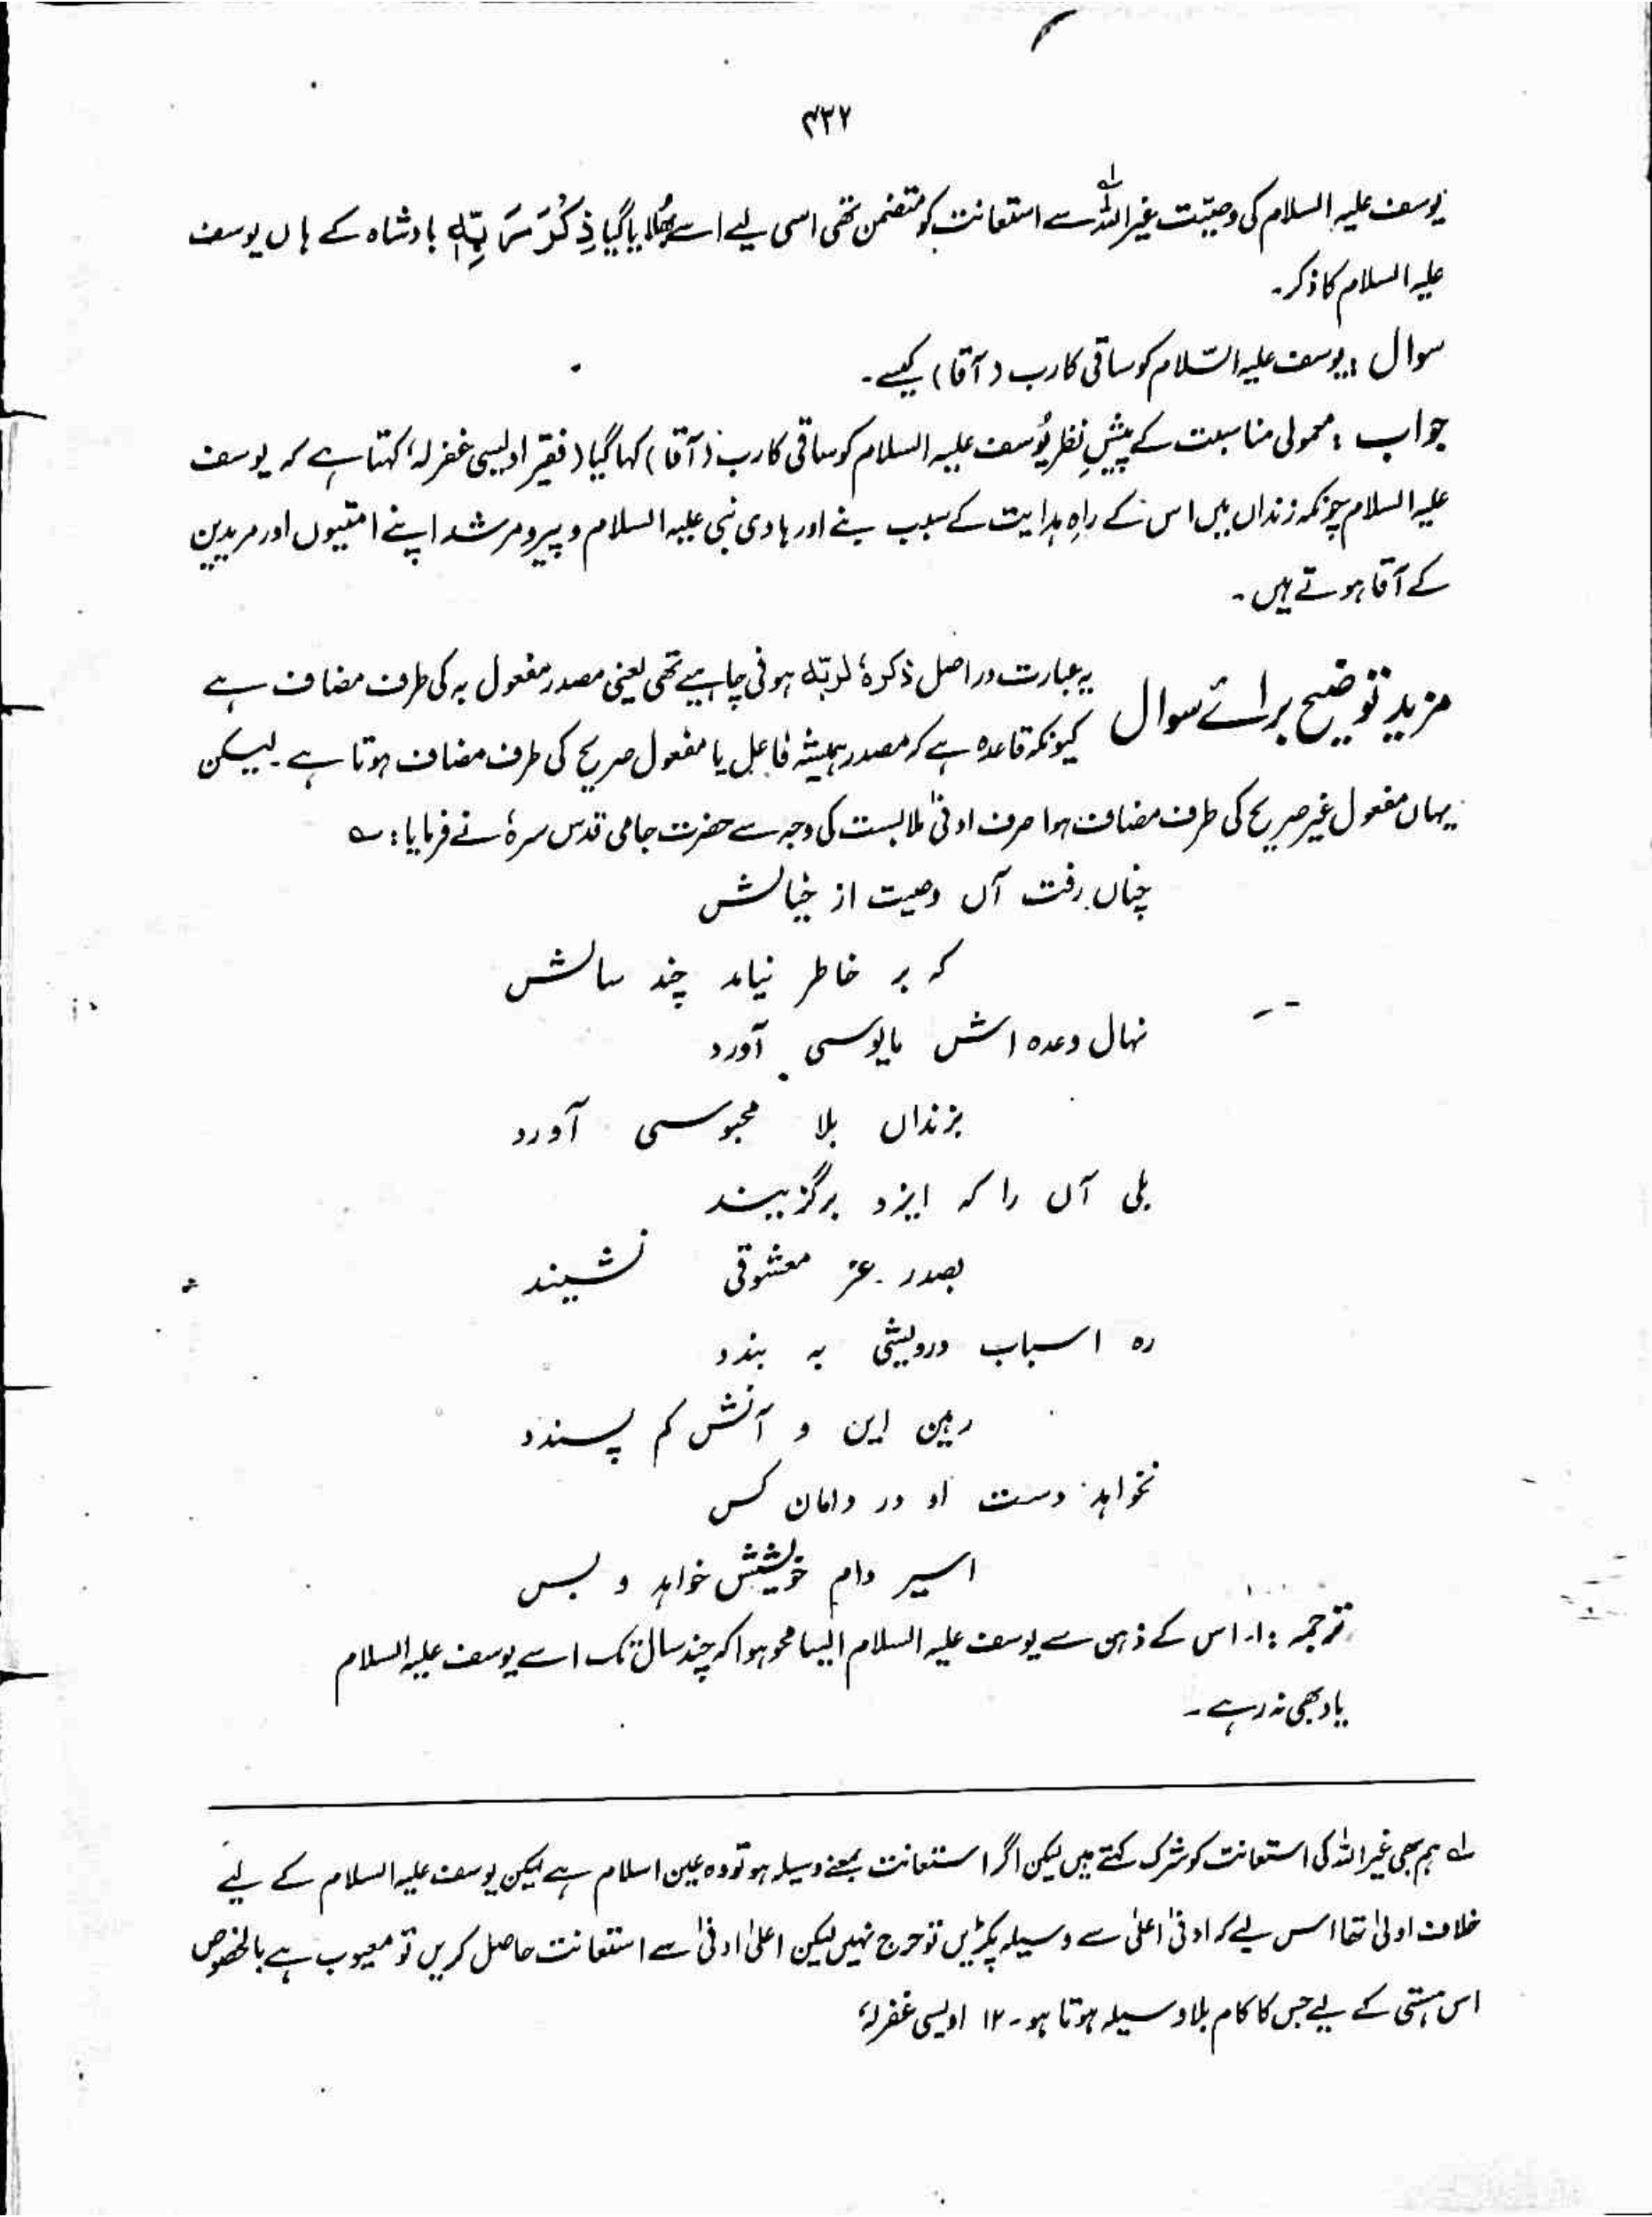 ۴۳۲
یوسف علیہ السلام کی وصیّت غیر اللہ۱؎ سے استعانت کو متضمن تھی اسی لیے اسے بھُلایا گیا ذِکْرَ رَبِّهٖ بادشاہ کے ہاں یوسف
علیہ السلام کا ذکر۔
سوال : یوسف علیہ السّلام کو ساقی کا رب (آقا) کیسے۔
جواب : معمولی مناسبت کے پیشِ نظر یُوسف علیہ السلام کو ساقی کا رب (آقا) کہا گیا (فقیر اویسی غفرلہٗ کہتا ہے کہ یوسف
علیہ السلام چونکہ زنداں میں اس کے راہِ ہدایت کے سبب بنے اور ہادی نبی علیہ السلام و پیر و مرشد اپنے امتیوں اور مریدین
کے آقا ہوتے ہیں۔
مزید توضیح برائے سوال یہ عبارت دراصل ذکرہٗ لربّہٖ ہونی چاہیے تھی یعنی مصدر مفعول بہ کی طرف مضاف ہے
کیونکہ قاعدہ ہے کہ مصدر ہمیشہ فاعل یا مفعول صریح کی طرف مضاف ہوتا ہے۔ لیکن
یہاں مفعول غیر صریح کی طرف مضاف ہوا صرف ادنیٰ ملابست کی وجہ سے حضرت جامی قدس سرہٗ نے فرمایا : ؎
چناں رفت آں وصیت از خیالش
کہ بر خاطر نیامد چند سالش
نہال وعدہ اش مایوسی آورد
بزنداں بلا محبوسی آورد
بلی آں را کہ ایزد برگزیند
بصدر عز معشوقی نشیند
رہ اسباب درویشی بہ بندد
رہین این و آنش کم پسندد
نخواہد دست او در دامان کس
اسیر دام خویشش خواہد و بس
ترجمہ : ۱۔ اس کے ذہن سے یوسف علیہ السلام ایسا محو ہوا کہ چند سال تک اسے یوسف علیہ السلام
یاد بھی نہ رہے۔
۱؎ ہم بھی غیر اللہ کی استعانت کو شرک کہتے ہیں لیکن اگر استعانت بمعنے وسیلہ ہو تو وہ عین اسلام ہے لیکن یوسف علیہ السلام کے لیے
خلاف اولیٰ تھا اس لیے کہ ادنیٰ اعلیٰ سے وسیلہ پکڑیں تو حرج نہیں لیکن اعلیٰ ادنیٰ سے استعانت حاصل کریں تو معیوب ہے بالخصوص
اس ہستی کے لیے جس کا کام بلا وسیلہ ہوتا ہو۔ ۱۲ اویسی غفرلہٗ